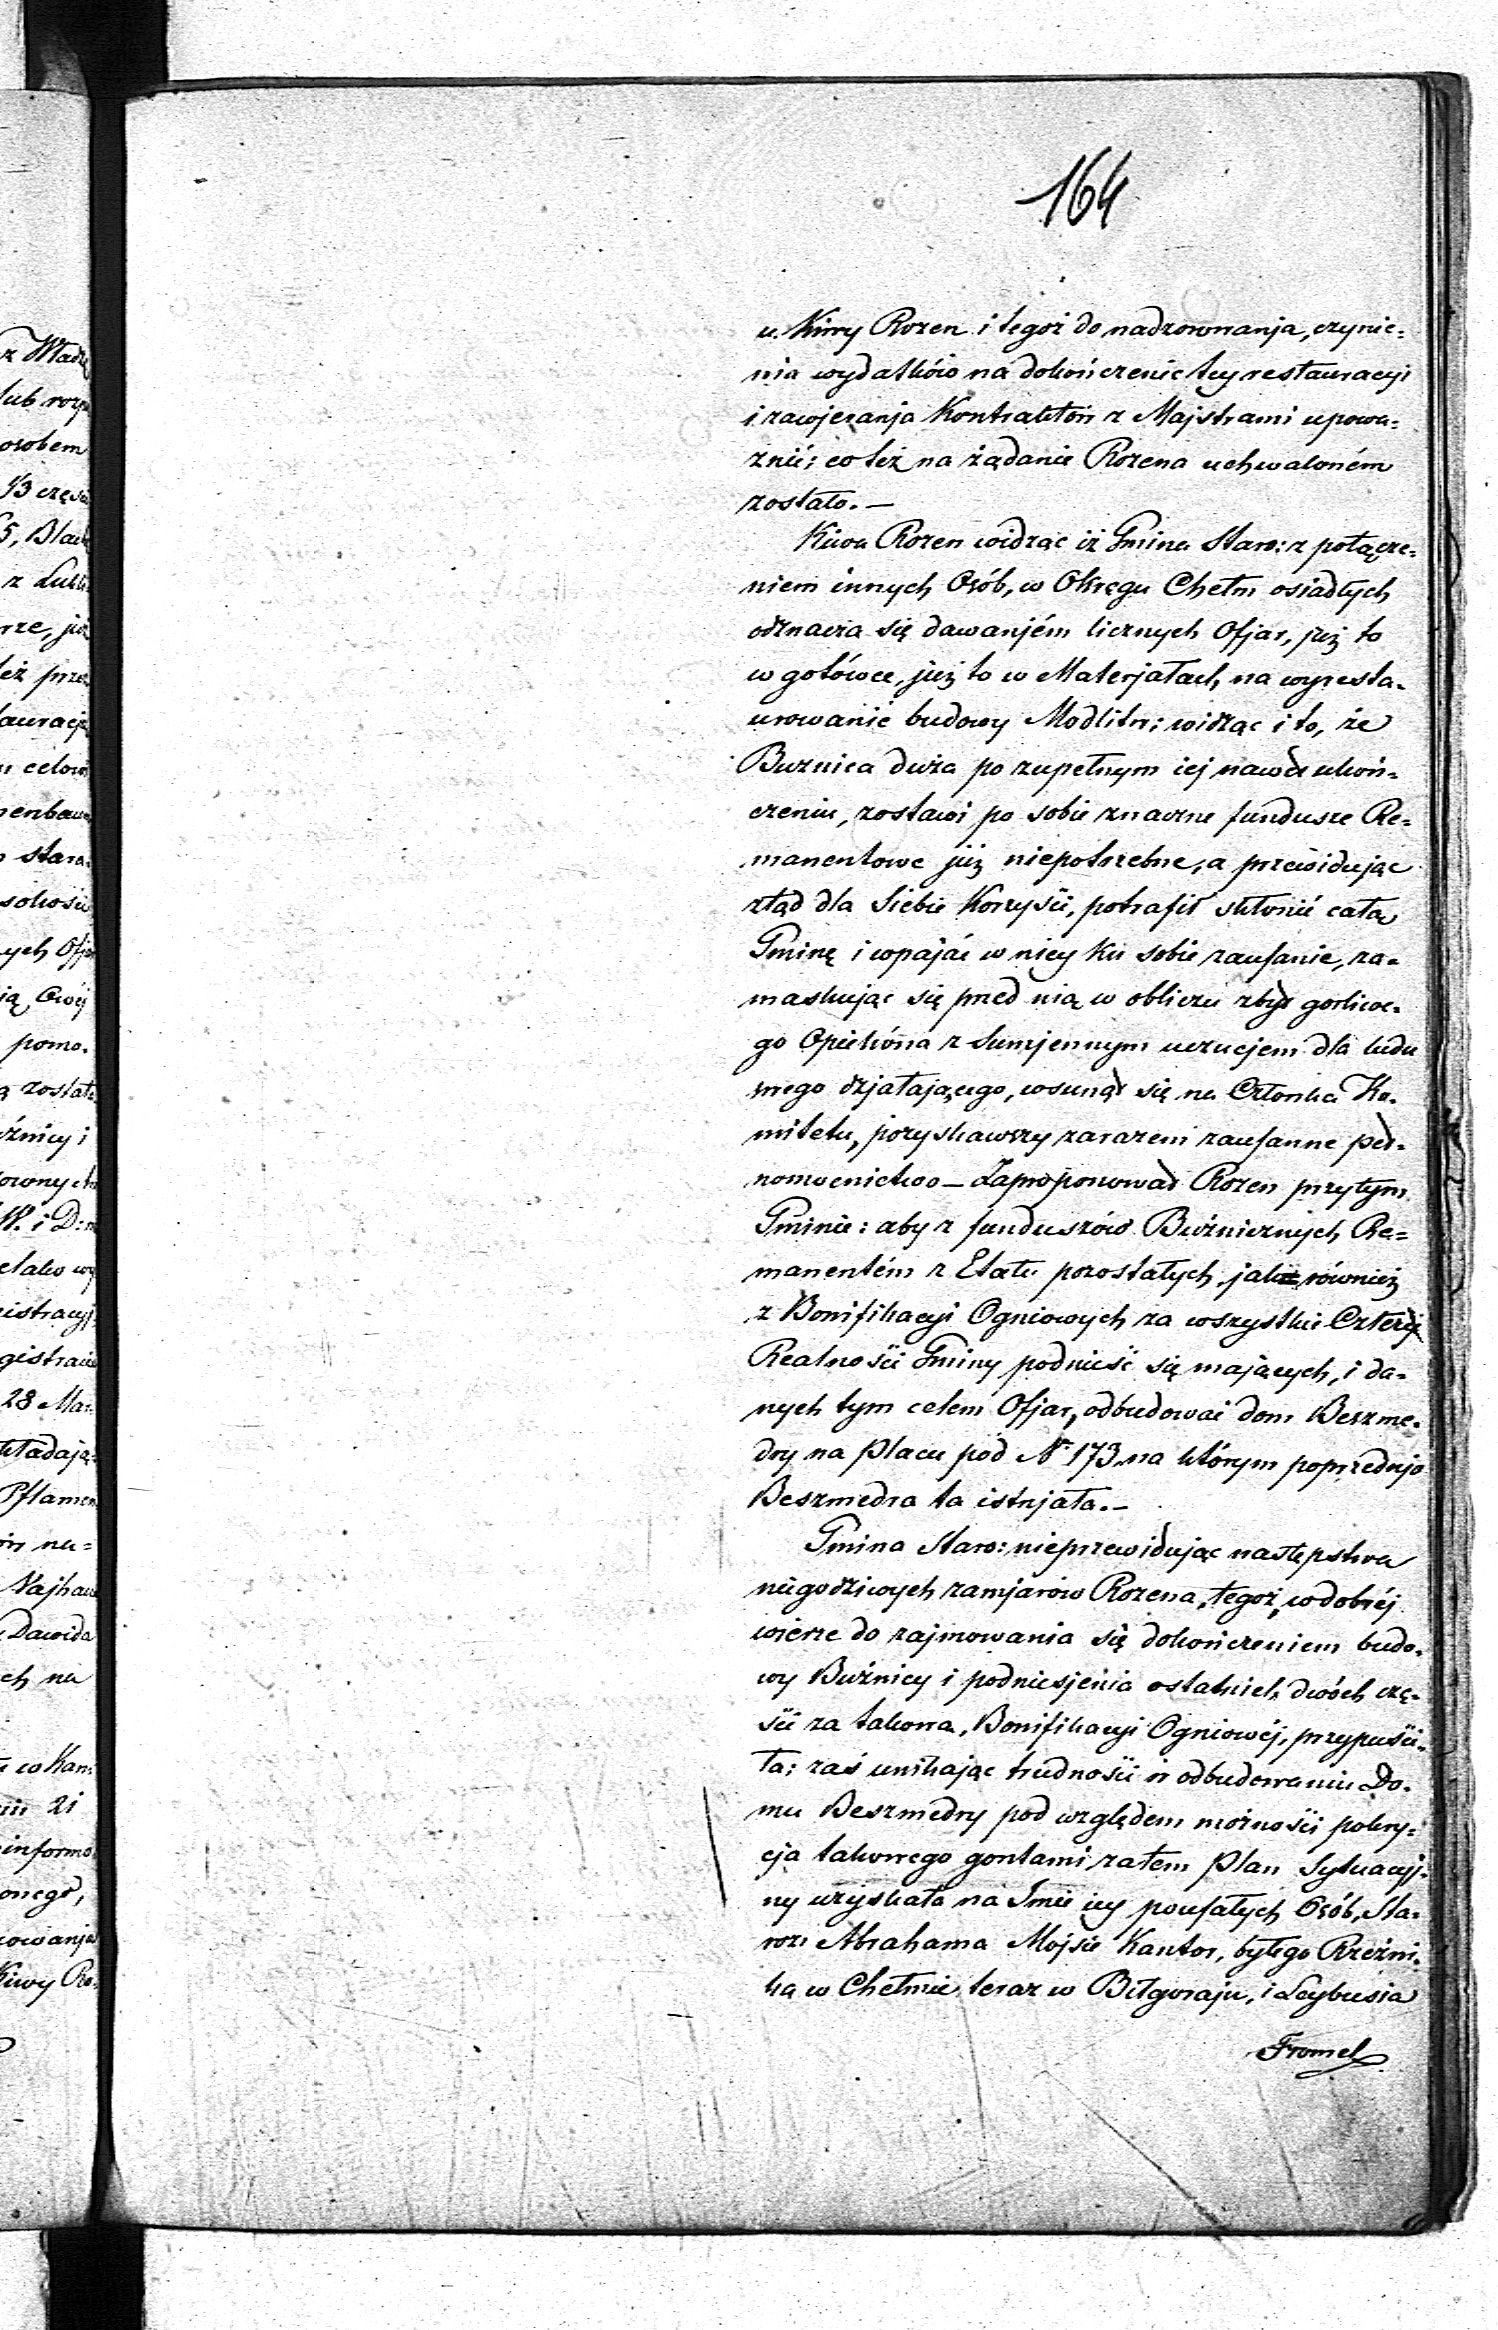 164
u. Kiwy Rozen i tegoż do nadzorowanja, czynie=
nia wydatków na dokończenie tey restauracyi
i zawjeranja Kontraktów z Majstrami upowa=
żnić; co też na żądanie Rozena uchwaloném
zostało. —
Kiwa Rozen widząc iż Gmina Staro: z połącze=
niem innych Osób, w Okręgu Chełm osiadłych
odznacza się dawanjém licznych Ofjar, już to
w gotówce, już to w Materjałach, na wyresta-
urowanie budowy Modlitw; widząc i to, że
Buznica duża po zupełnym iej nawet ukoń-
czeniu, zostawi po sobie znaczne fundusze Re=
manentowe już niepotrzebne, a przewidując
ztąd dla Siebie Korzyści, potrafił skłonić całą
Gminę i wpajać w niey ku sobie zaufanie, za-
maskując się przed nią w obliczu zbyt gorliwe-
go Opiekóna z Sumjennym uczucjem dla ludu
swego dzjałającego, wsunął się na Członka Ko-
mitetu, pozyskawszy zarazem zaufanne peł-
nomocnictwo — Zaproponował Rozen przytym
Gminie: aby z funduszów Bużnicznych Re=
manentém z Etatu pozostałych, jako również
z Bonifikacyi Ogniowych za wszystkie Cztery
Realności Gminy podnieść się mających, i da-
nych tym celem Ofjar, odbudować dom Beszme-
dry na Placu pod N 173, na którym poprzednjo
Beszmedra ta istnjała. —
Gmina Staro: nieprzewidując następstwa
niegodziwych zamjarów Rozena, tegoż, w dobréj
wierze do zajmowania się dokończeniem budo-
wy Bużnicy i podniesjenia ostatnich dwóch czę-
ści za takowa, Bonifikacyi Ogniowéj, przypuści-
ła; zaś unikając trudności w odbudowaniu Do-
mu Beszmedry pod względem możności pokry-
cja takowego gontami, zatem Plan Sytuacyj-
ny uzyskała na Imie iey poufałych Osób, Sta-
roz: Abrahama Mojsie Kantor, byłego Rzeźni-
ka w Chełmie teraz w Biłgoraju, i Leybusia
Fromel